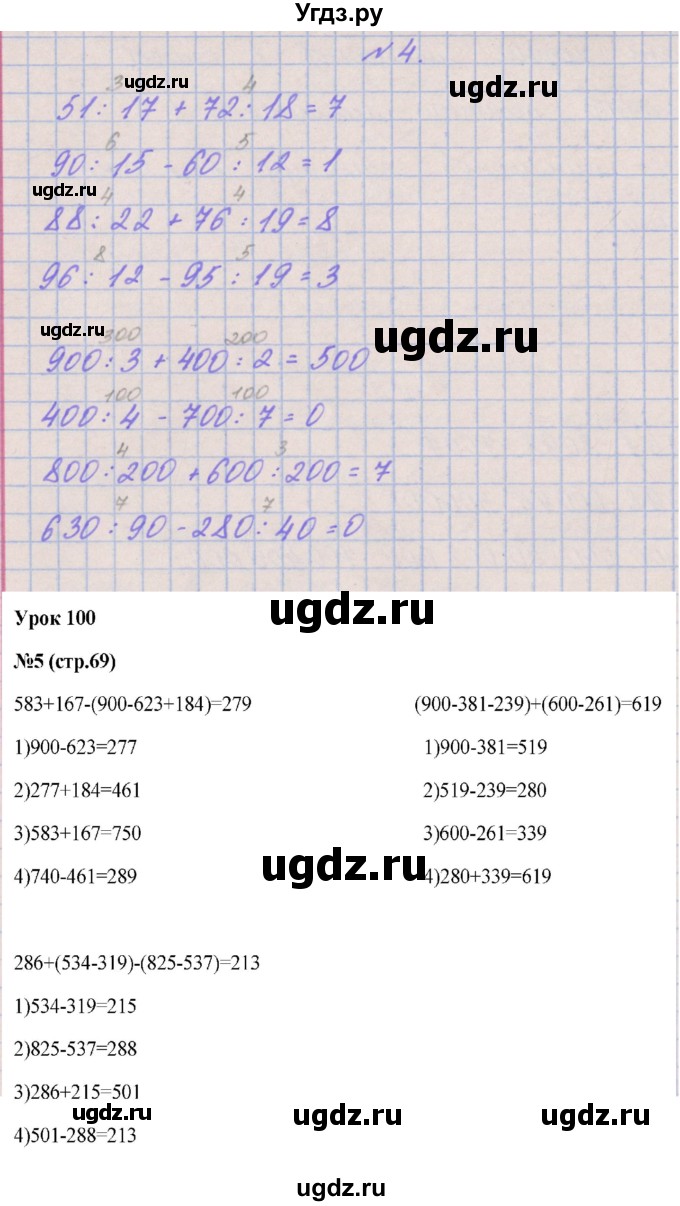 Угдз.ру
№ 4.
ugdz.ru
ugdz.ru
3 4
51 : 17 + 72 : 18 = 7
6 5
90 : 15 - 60 : 12 = 1
ugdz.ru
4 4
88 : 22 + 76 : 19 = 8
8 5
96 : 12 - 95 : 19 = 3
ugdz.ru
ugdz.ru
300 200
900 : 3 + 400 : 2 = 500
100 100
400 : 4 - 700 : 7 = 0
4 3
800 : 200 + 600 : 200 = 7
7 7
630 : 90 - 280 : 40 = 0
ugdz.ru
Урок 100
№5 (стр.69)
583+167-(900-623+184)=279
1)900-623=277
2)277+184=461
3)583+167=750
4)740-461=289
(900-381-239)+(600-261)=619
1)900-381=519
2)519-239=280
3)600-261=339
4)280+339=619
ugdz.ru
286+(534-319)-(825-537)=213
1)534-319=215
2)825-537=288
3)286+215=501
4)501-288=213
ugdz.ru ugdz.ru ugdz.ru
ugdz.ru